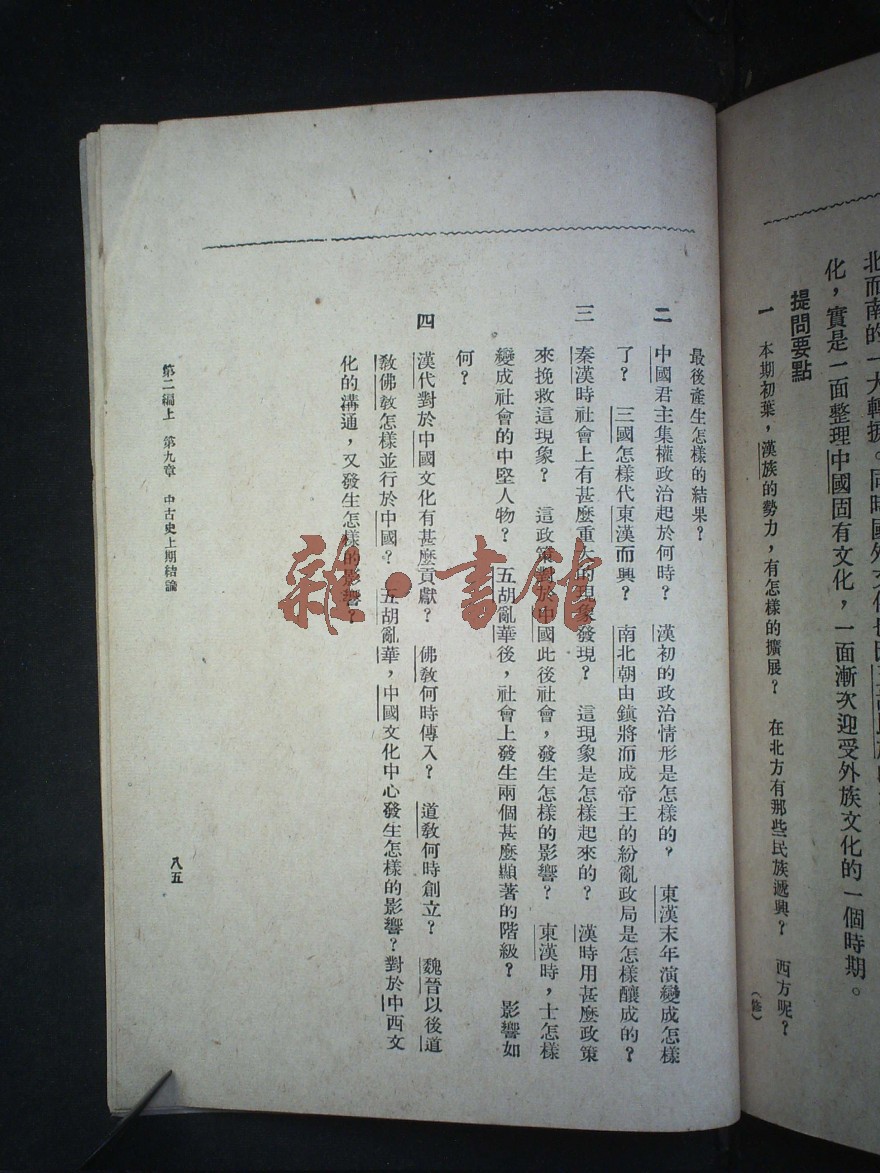 北而南的一大轉捩。同時國外文化也因
化，實是一面整理中國固有文化，一面漸次迎受外族文化的一個時期。
提問要點
一　本期初葉，漢族的勢力，有怎樣的擴展？　在北方有那些民族遞興？　西方呢？
最後產生怎樣的結果？
二　中國君主集權政治起於何時？　漢初的政治情形是怎樣的？　東漢末年演變成怎樣
了？　三國怎樣代東漢而興？　南北朝由鎮將而成帝王的紛亂政局是怎樣釀成的？
三　秦漢時社會上有甚麼重大的現象發現？　這現象是怎樣起來的？　漢時用甚麼政策
來挽救這現象？　這政策對於中國此後社會，發生怎樣的影響？　東漢時，士怎樣
變成社會的中堅人物？　五胡亂華後，社會上發生兩個甚麼顯著的階級？　影響如
何？
四　漢代對於中國文化有甚麼貢獻？　佛敎何時傳入？　道敎何時創立？　魏晉以後道
敎佛敎怎樣並行於中國？　五胡亂華，中國文化中心發生怎樣的影響？對於中西文
化的溝通，又發生怎樣的影響？
第二編上　第九章　中古史上期結論
八五
雜·書館